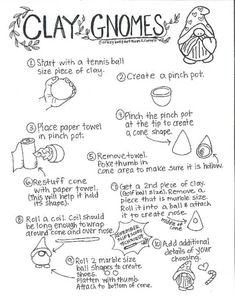 CLAY GNOMES
① Start with a tennis ball
size piece of clay.
② Create a pinch pot.
③ Place paper towel
in pinch pot.
④ Pinch the pinch pot
at the tip to create
a cone shape.
⑤ Remove towel.
Poke thumb in
cone area to make sure it is hollow.
⑥ Restuff cone
with paper towel.
This will help it hold
its shape).
⑦ Get a 2nd piece of clay.
(golf ball size). Remove a
piece that is marble size.
Roll it into a ball & attach
it to create nose.
⑧ Roll a coil. Coil should
be long enough to wrap
around cone and over nose.
⑨ Roll 2 marble size
ball shapes to create
shoes.
Flatten with thumb.
Attach to bottom of cone.
⑩ Add additional
details of your
choosing.